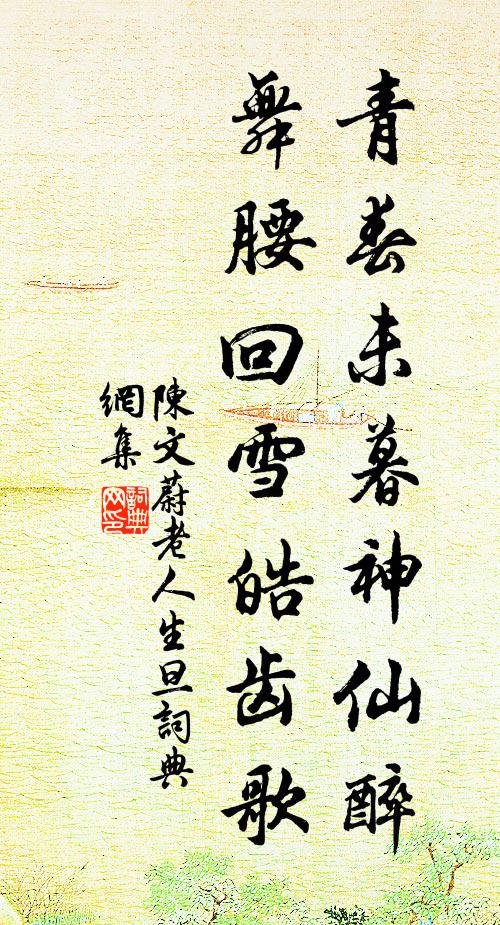 青春未暮神仙醉
舞腰回雪皓齿歌
陳文蔚老人生旦詞典
網集
詞典
网印